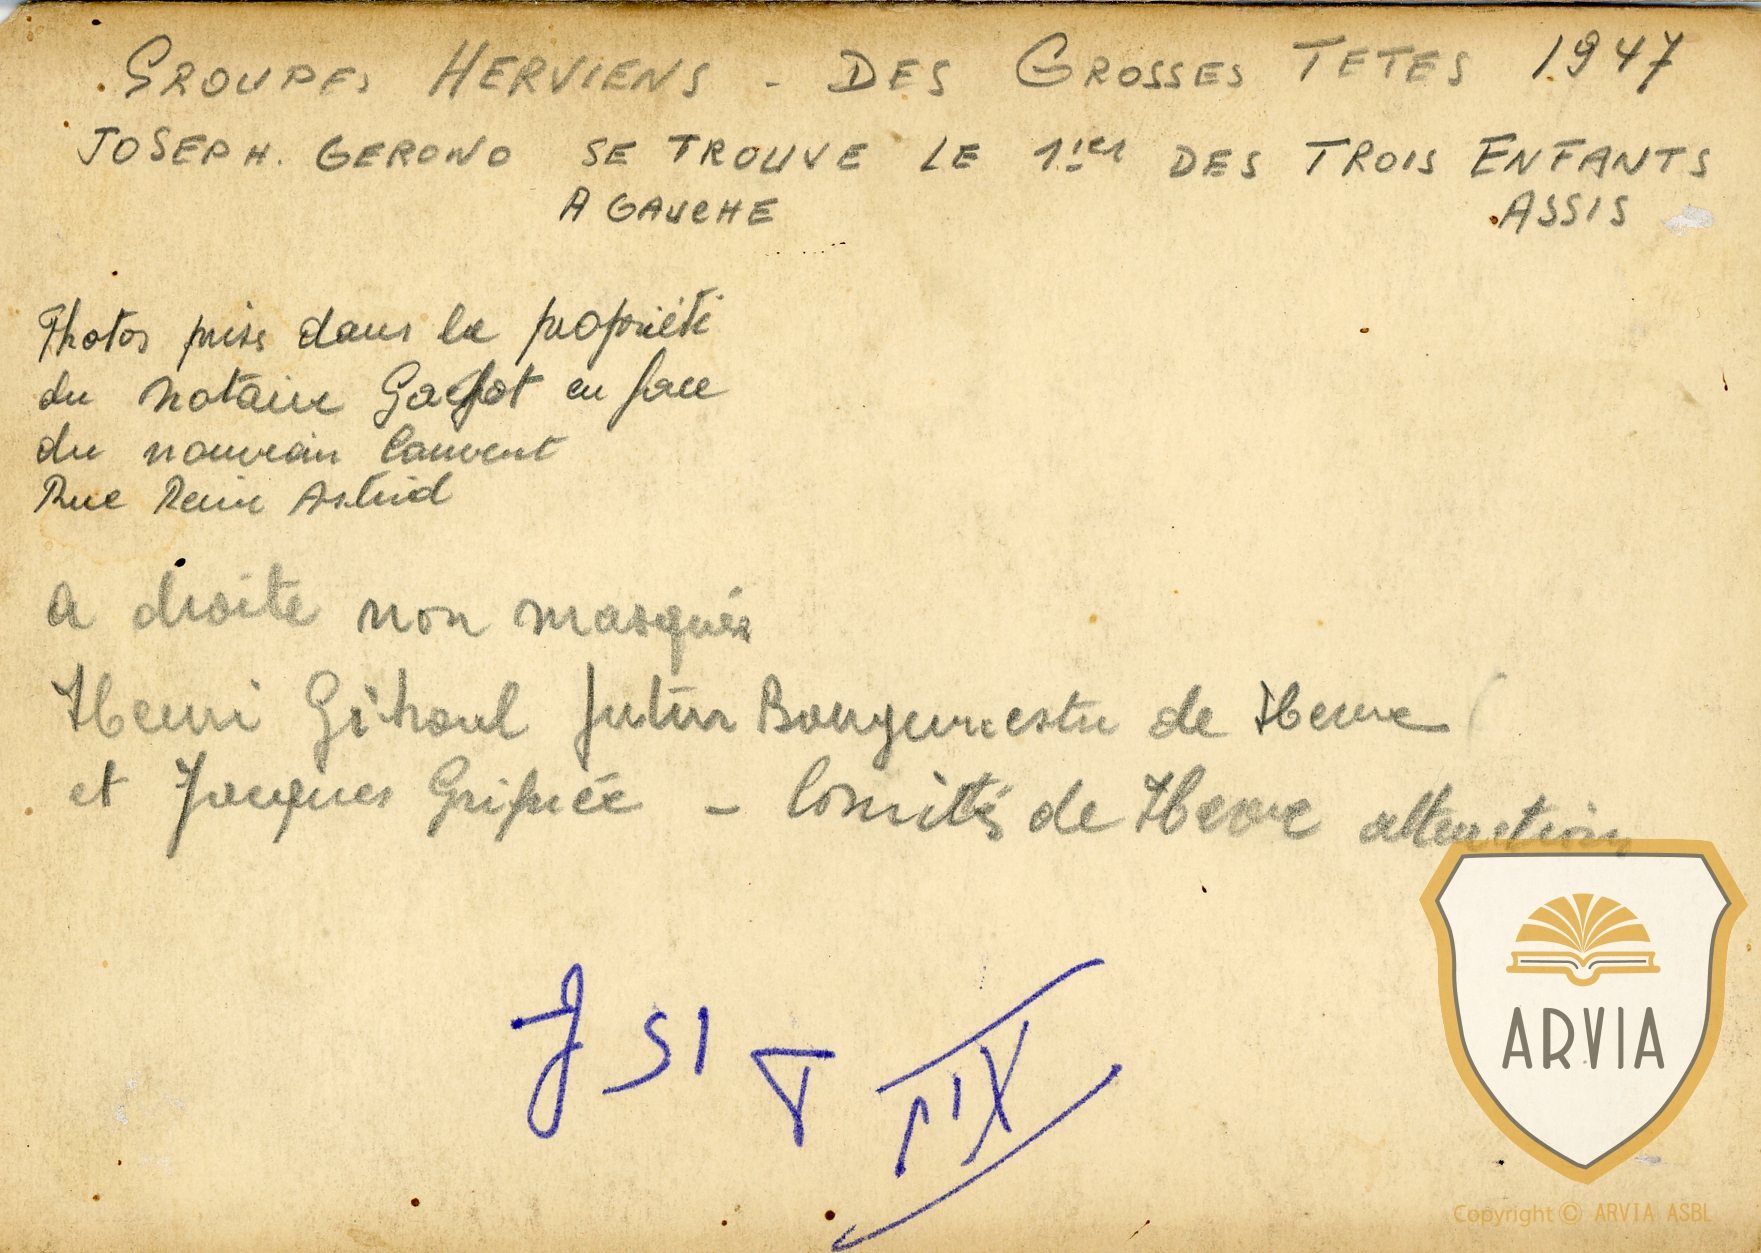 GROUPES HERVIENS - DES GROSSES TETES 1947
JOSEPH. GERONO SE TROUVE LE 1ier DES TROIS ENFANTS
A GAUCHE ASSIS
Photos prise dans la propriété
du notaire en face
du nouveau Couvent
Rue Reine Astrid
a droite non masqués
Henri Gihoul futur Bourgmestre de Herve
et Jacques - Comités de Herve attraction
J51
ARVIA
Copyright © ARVIA ASBL